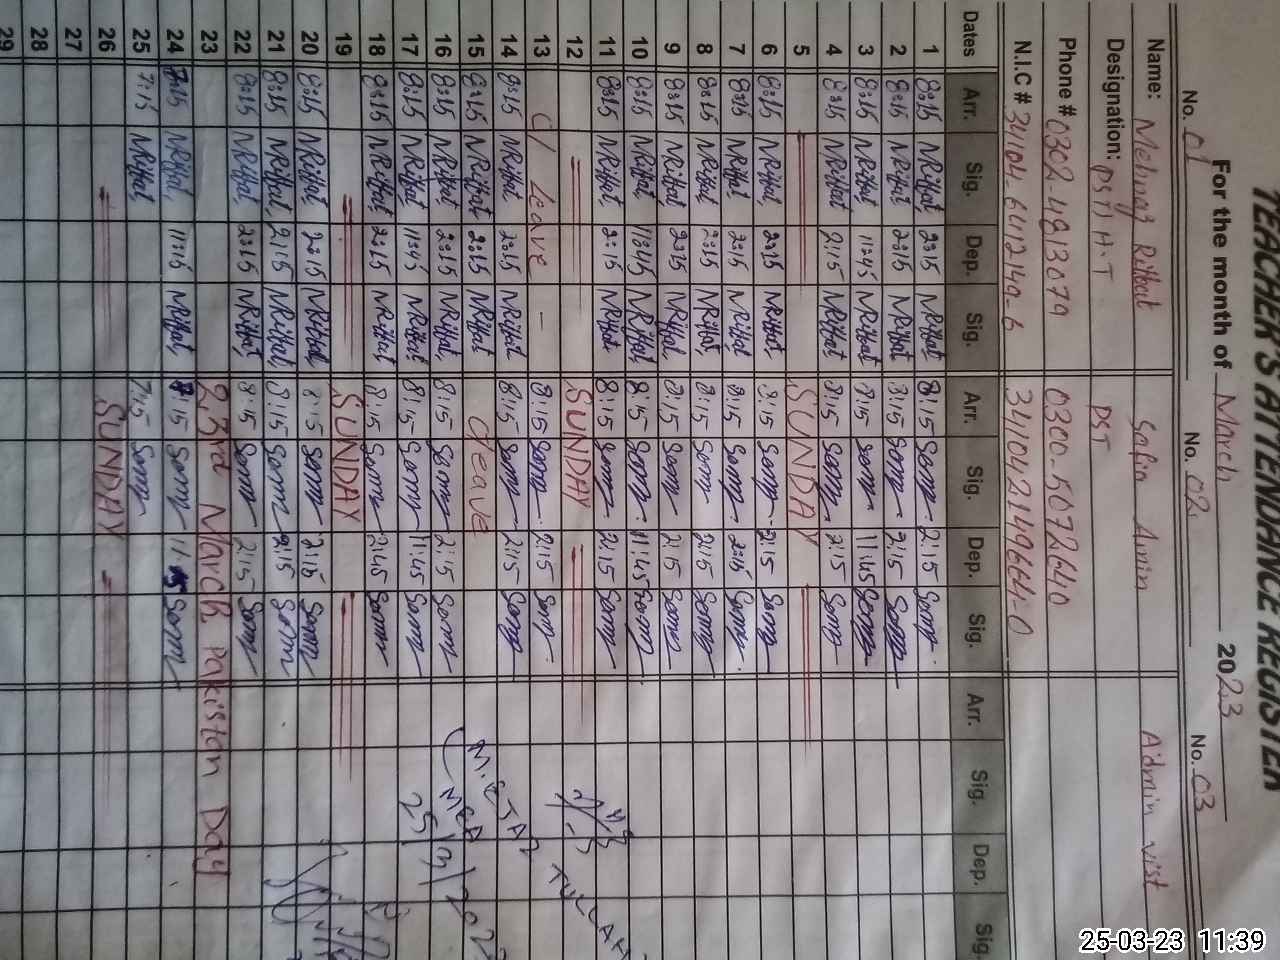 TEACHER'S ATTENDANCE REGISTER
For the month of March 2023
No. 01 No. 02 No. 03
Name: Mehnaz Riffat Safia Amin Admin vist
Designation: PST) H.T PST
Phone # 0302-4813079 0300-5072640
N.I.C # 34104-6411214 3410421496641-0
Dates Arr. Sig. Dep. Sig. Arr. Sig. Dep. Sig. Arr. Sig. Dep. Sig.
1 8:15 NRiffat 2:15 NRiffat 8:15 2:15
2 8:15 NRiffat 2:15 NRiffat 8:15 2:15
3 8:15 NRiffat 11:45 NRiffat 8:15 11:45
4 8:15 NRiffat 2:15 NRiffat 8:15 2:15
5 SUNDAY
6 8:15 NRiffat 2:15 NRiffat 8:15 2:15
7 8:15 NRiffat 2:15 NRiffat 8:15 2:15
8 8:15 NRiffat 2:15 NRiffat 8:15 2:15
9 8:15 NRiffat 2:15 NRiffat 8:15 2:15
10 8:15 NRiffat 11:45 NRiffat 8:15 11:45
11 8:15 NRiffat 2:15 NRiffat 8:15 2:15
12 SUNDAY
13 C/ Leave - 8:15 2:15
14 8:15 NRiffat 2:15 NRiffat 8:15 2:15
15 8:15 NRiffat 2:15 NRiffat C/leave
16 8:15 NRiffat 2:15 NRiffat 8:15 2:15
17 8:15 NRiffat 11:45 NRiffat 8:15 11:45
18 8:15 NRiffat 2:15 NRiffat 8:15 2:45
19 SUNDAY
20 8:15 NRiffat 2:15 NRiffat 8:15 2:15
21 8:15 NRiffat 2:15 NRiffat 8:15 2:15
22 8:15 NRiffat 2:15 NRiffat 8:15 2:15
23 23rd March Pakistan Day
24 7:15 NRiffat 11:15 NRiffat 7:15
25 7:15 NRiffat 7:15
26 SUNDAY
27
28
29
MEA
25/3/202
25-03-23 11:39